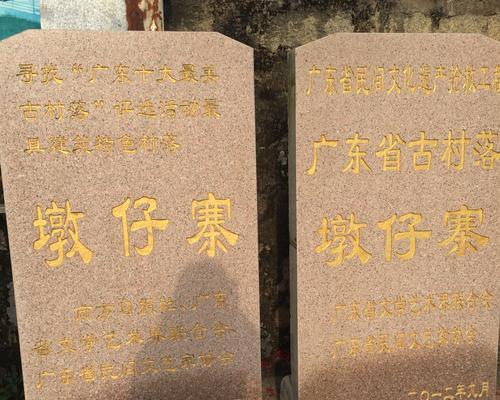 寻找“广东十大最美
古村落”评选活动最
具建筑特色村落
墩仔寨
南方日报社、广东
省文学艺术界联合会
广东省民间文艺家协会
广东省民间文化遗产抢救工
广东省古村落
墩仔寨
广东省文学艺术界联合会
广东省民间文艺家协会
二〇一二年九月